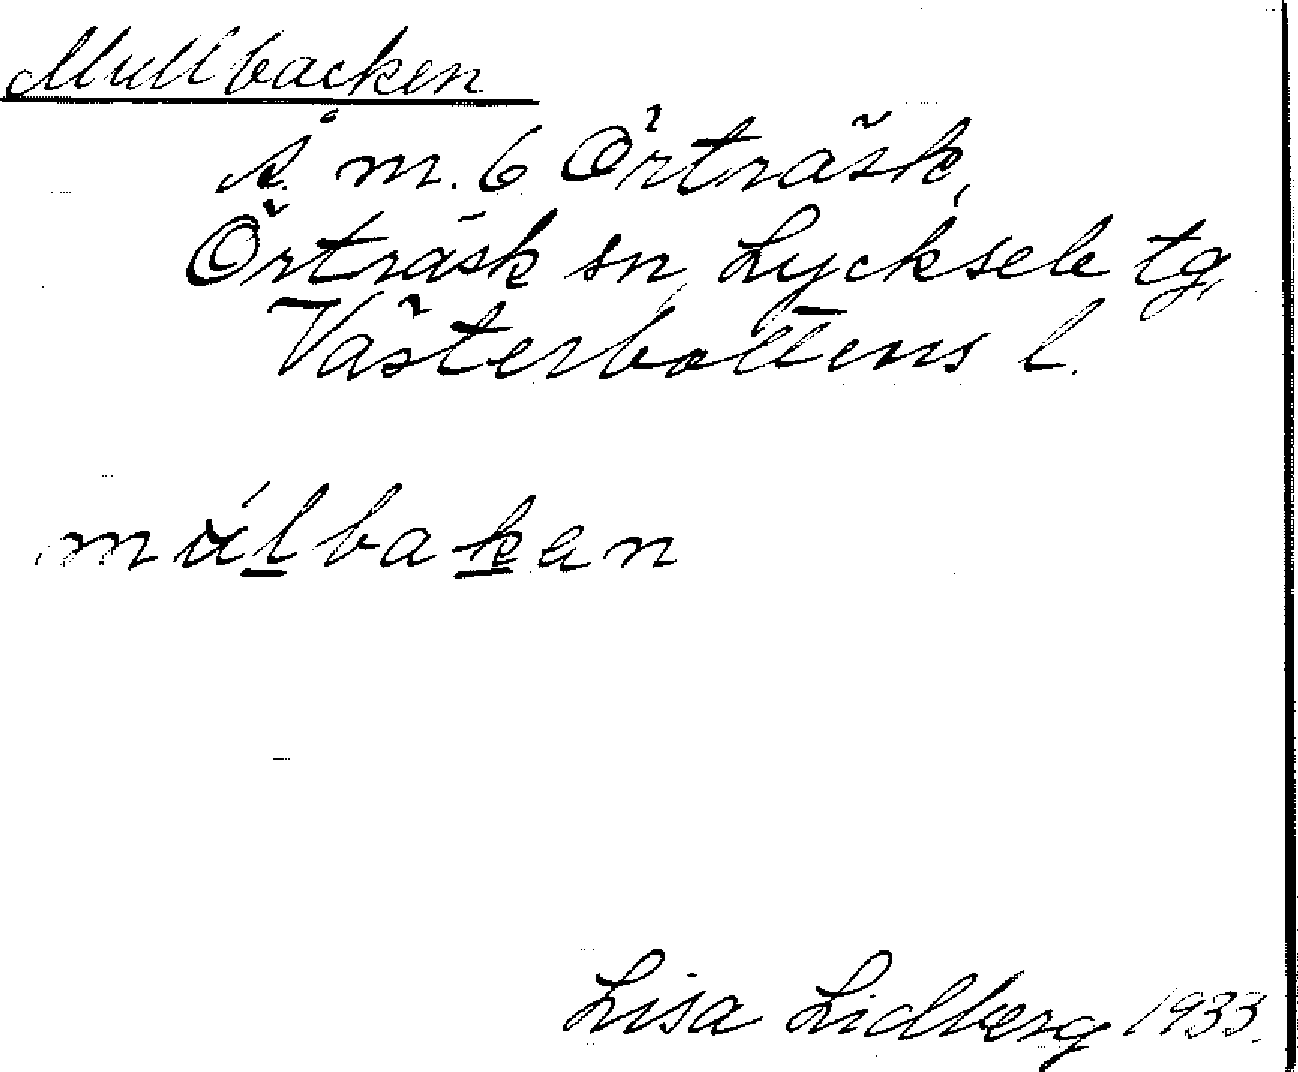 Mullbacken
å. m. 6 Örträsk,
Örträsk sn, Lycksele tg,
Västerbottens l.
múl̲bak̲en
Lisa Lidberg 1933.